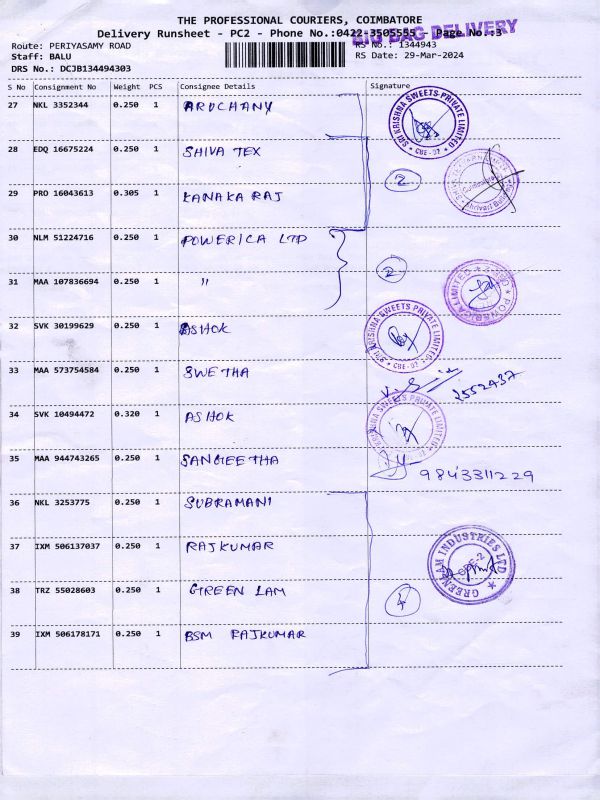 THE PROFESSIONAL COURIERS, COIMBATORE
Delivery Runsheet - PC2 - Phone No.:0422-3505555 - Page No.:3
BIG BAG DELIVERY
Route: PERIYASAMY ROAD
RS No.: 1344943
Staff: BALU
RS Date: 29-Mar-2024
DRS No.: DCJB134494303
S No Consignment No Weight PCS Consignee Details Signature
27 NKL 3352344 0.250 1 ARUCHANY
SRI KRISHNA SWEETS PRIVATE LIMITED
CBE-02
28 EDQ 16675224 0.250 1 SHIVA TEX
2
29 PRO 16043613 0.305 1 KANAKA RAJ
30 NLM 51224716 0.250 1 POWERICA LTD
31 MAA 107836694 0.250 1 "
2
POWERICA LIMITED
32 SVK 30199629 0.250 1 ASHOK
SRI KRISHNA SWEETS PRIVATE LIMITED
CBE-02
33 MAA 573754584 0.250 1 SWETHA
2552437
34 SVK 10494472 0.320 1 ASHOK
KRISHNA SWEETS PRIVATE LIMITED
35 MAA 944743265 0.250 1 SANGEETHA
9843311229
36 NKL 3253775 0.250 1 SUBRAMANI
37 IXM 506137037 0.250 1 RAJKUMAR
GREENLAM INDUSTRIES LTD
38 TRZ 55028603 0.250 1 GREEN LAM
4
39 IXM 506178171 0.250 1 BSM RAJKUMAR